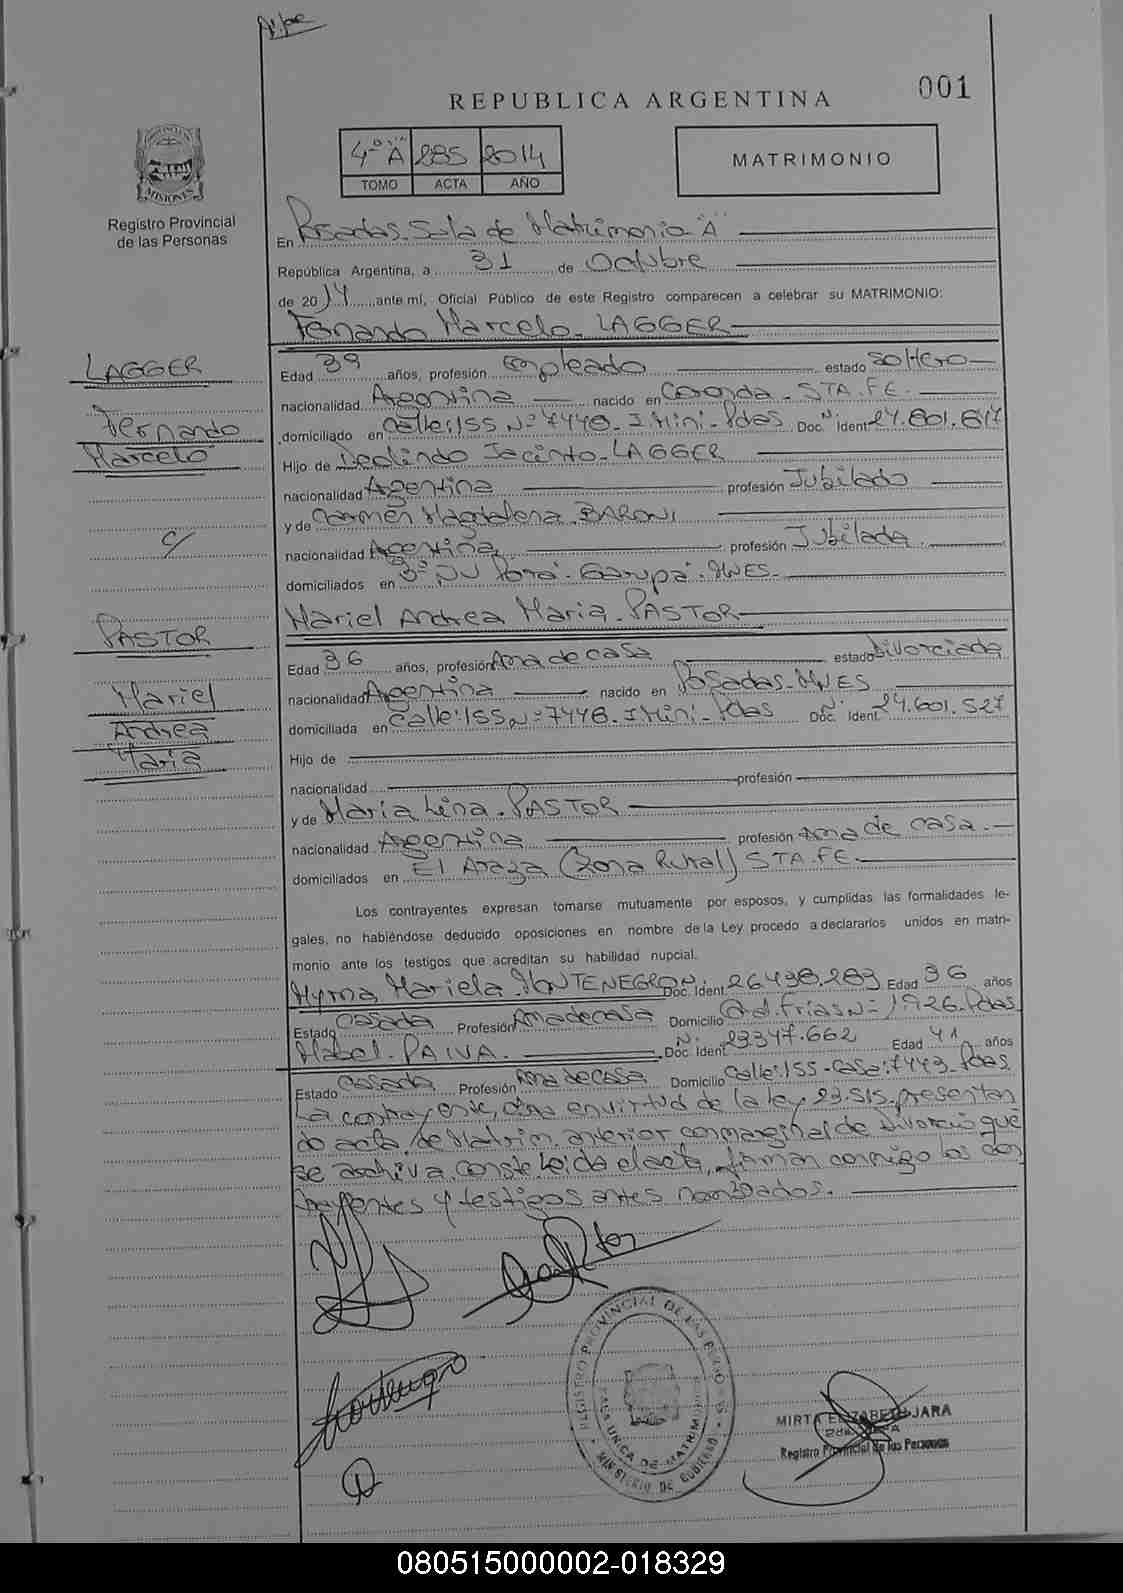 001
REPUBLICA ARGENTINA
4º "A" 285 2014
TOMO ACTA AÑO
MATRIMONIO
MISIONES
Registro Provincial
de las Personas
En Posadas-Sala de Matrimonio "A"
República Argentina, a 31 de Octubre
de 2014 ante mí, Oficial Público de este Registro comparecen a celebrar su MATRIMONIO:
Fernando Marcelo LAGGER
LAGGER
Fernando
Marcelo
Edad 39 años, profesión Empleado estado soltero
nacionalidad Argentina nacido en Coronda - STA.FE.
domiciliado en Calle:155 Nº 7448- I.Mini-Pdas Doc. Ident Nº: 24.801.617
Hijo de Deolindo Jacinto-LAGGER
nacionalidad Argentina profesión Jubilado
y de Carmen Magdalena BARONI
c/
nacionalidad Argentina profesión Jubilada
domiciliados en Bº Ñu Porá-Garupá-MNES-
Mariel Andrea Maria-PASTOR
PASTOR
Mariel
Andrea
Maria
Edad 36 años, profesión Ama de casa estado Divorciada
nacionalidad Argentina nacido en Posadas-MNES
domiciliada en Calle:155 Nº 7448-I.Mini-Pdas Doc. Ident Nº: 24.601.527
Hijo de
nacionalidad profesión
y de Maria Lina-PASTOR
nacionalidad Argentina profesión Ama de casa.
domiciliados en El Araza (zona Rural) STA.FE.
Los contrayentes expresan tomarse mutuamente por esposos, y cumplidas las formalidades le-
gales, no habiéndose deducido oposiciones en nombre de la Ley procedo a declararlos unidos en matri-
monio ante los testigos que acreditan su habilidad nupcial.
Myrna Mariela MONTENEGRO Doc. Ident Nº: 26.498.289 Edad 36 años
Estado Casada Profesión Ama de casa Domicilio Frias Nº 1926-Pdas
Mabel-PAIVA. Doc. Ident Nº 23.347.662 Edad 41 años
Estado Casada Profesión Ama de casa Domicilio Calle:155-Casa:7443 Pdas
La contrayente, en virtud de la ley 23.515, presentan
do acta de Matrim. anterior con marginal de Divorcio que
se archiva. Conste. Leida el acta, firman conmigo los con
trayentes y testigos antes nombrados.
REGISTRO PROVINCIAL DE LAS PERSONAS
SALA UNICA DE MATRIMONIOS
MINISTERIO DE GOBIERNO
MIRTA ELIZABETH JARA
Registro Provincial de las Personas
080515000002-018329